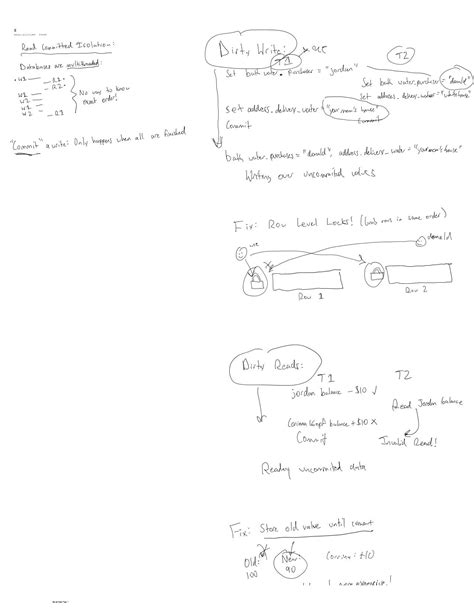 Read Committed Isolation:
Databases are multithreaded:
W1 R1
R2
W3
W1
W2 R1
No way to know
exact order!
"Commit" a write: Only happens when all are finished
Dirty Write:
T1
me
T2
Set bath water.purchaser = "jordan"
Set bath water.purchaser = "donald"
set address_delivery_water = "whitehouse"
Commit
set address_delivery_water = "your mom's house"
Commit
bath water.purchaser = "donald", address_delivery_water = "your mom's house"
Writing over uncommitted values
Fix: Row Level Locks! (Grab rows in same order)
me
donald
Row 1
Row 2
Dirty Reads:
T1
T2
jordan balance - $10 ✓
Read Jordan balance
balance + $10 X
Commit
Invalid Read!
Reading uncommitted data
Fix: Store old value until commit
Old:
100
New:
90